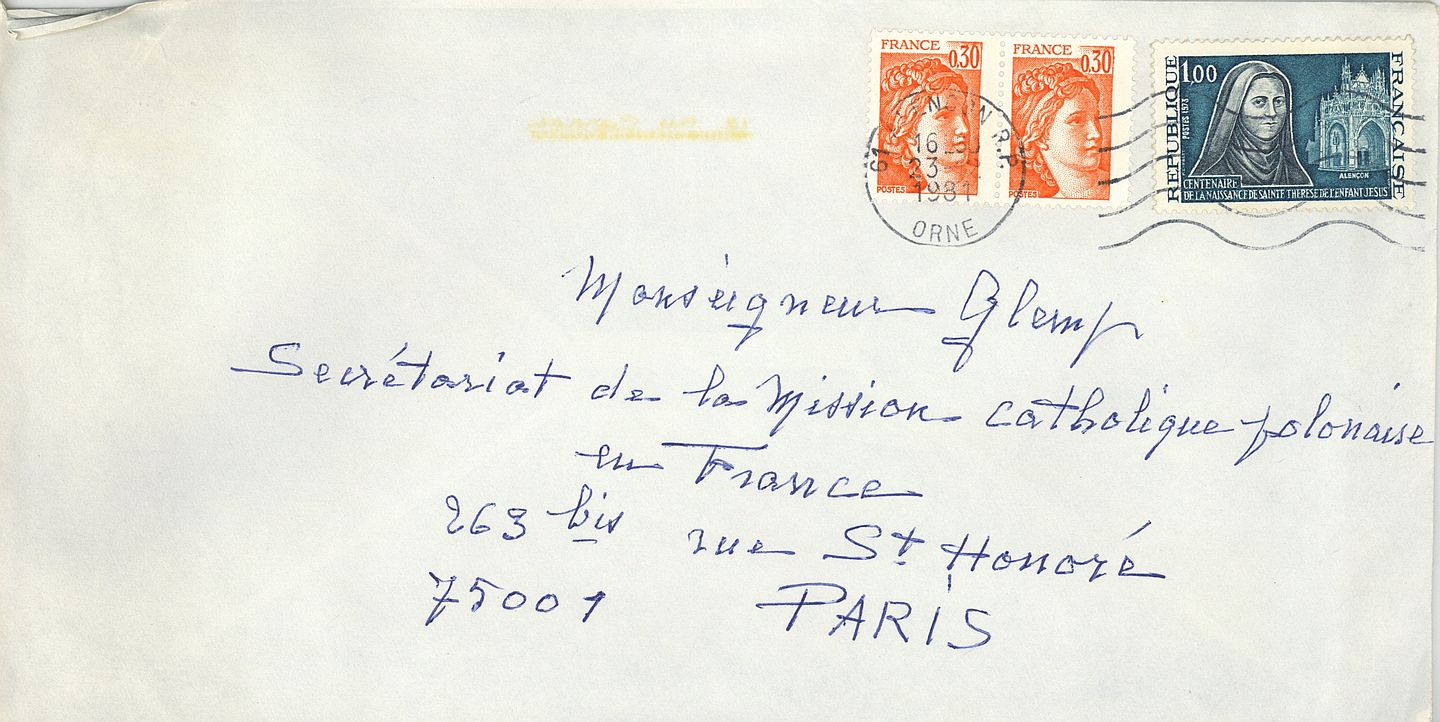 FRANCE 0.30
POSTES
FRANCE 0.30
POSTES
1.00
REPUBLIQUE FRANÇAISE
POSTES 1973
ALENÇON
CENTENAIRE
DE LA NAISSANCE DE SAINTE THERESE DE L'ENFANT JESUS
R.P.
16
23
1981
ORNE
Monseigneur Glemp
Secrétariat de la Mission catholique polonaise
en France
263 bis rue St Honoré
75001 PARIS